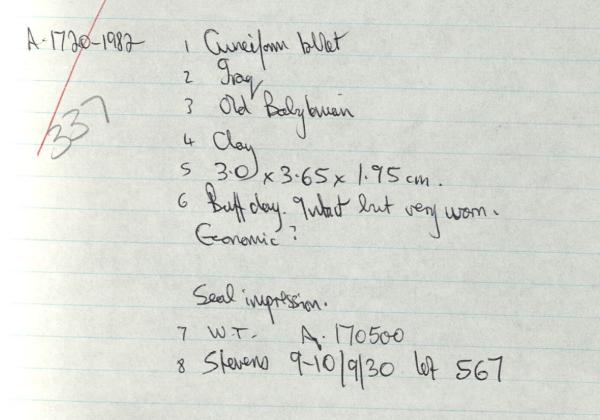 A·1720-1982
337
1 Cuneiform tablet
2 Iraq
3 Old Babylonian
4 Clay
5 3.0 x 3.65 x 1.95 cm.
6 Buff clay. Intact but very worn.
Economic?
Seal impression.
7 W.T. A. 170500
8 Stevens 9-10/9/30 lot 567